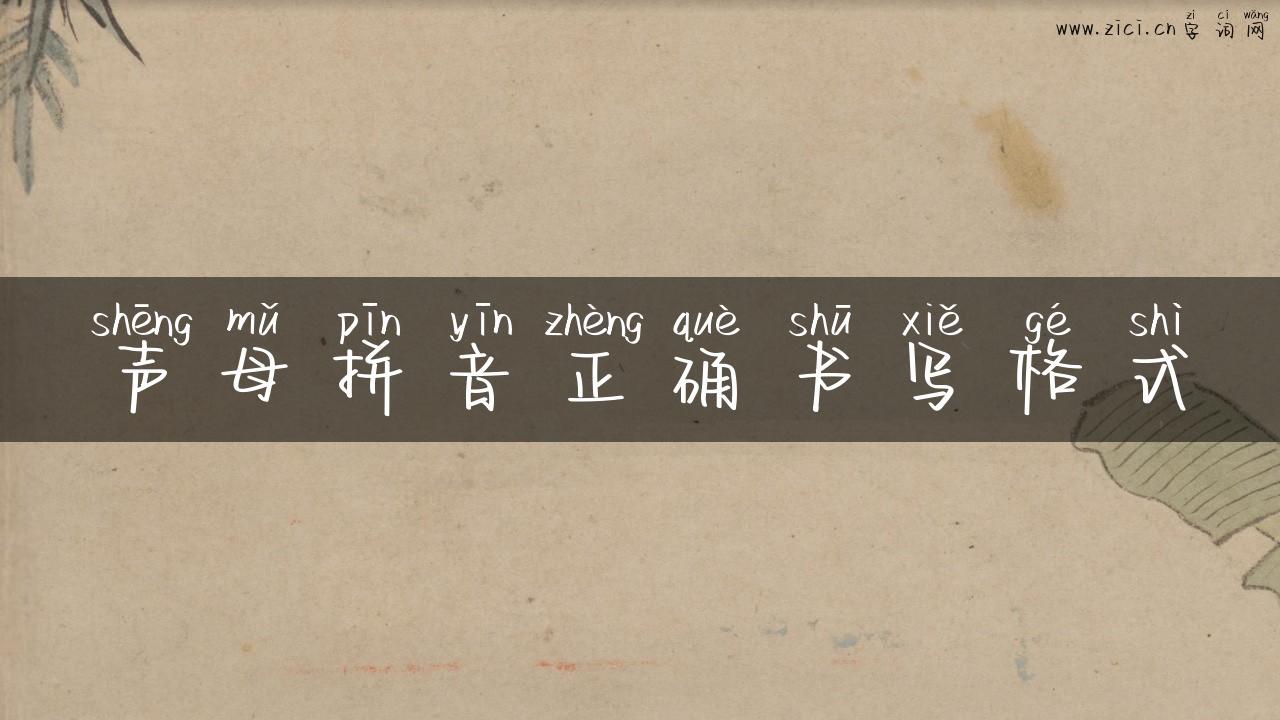 zì cí wǎng
www.zici.cn 字 词 网
shēng mǔ pīn yīn zhèng què shū xiě gé shì
声 母 拼 音 正 确 书 写 格 式